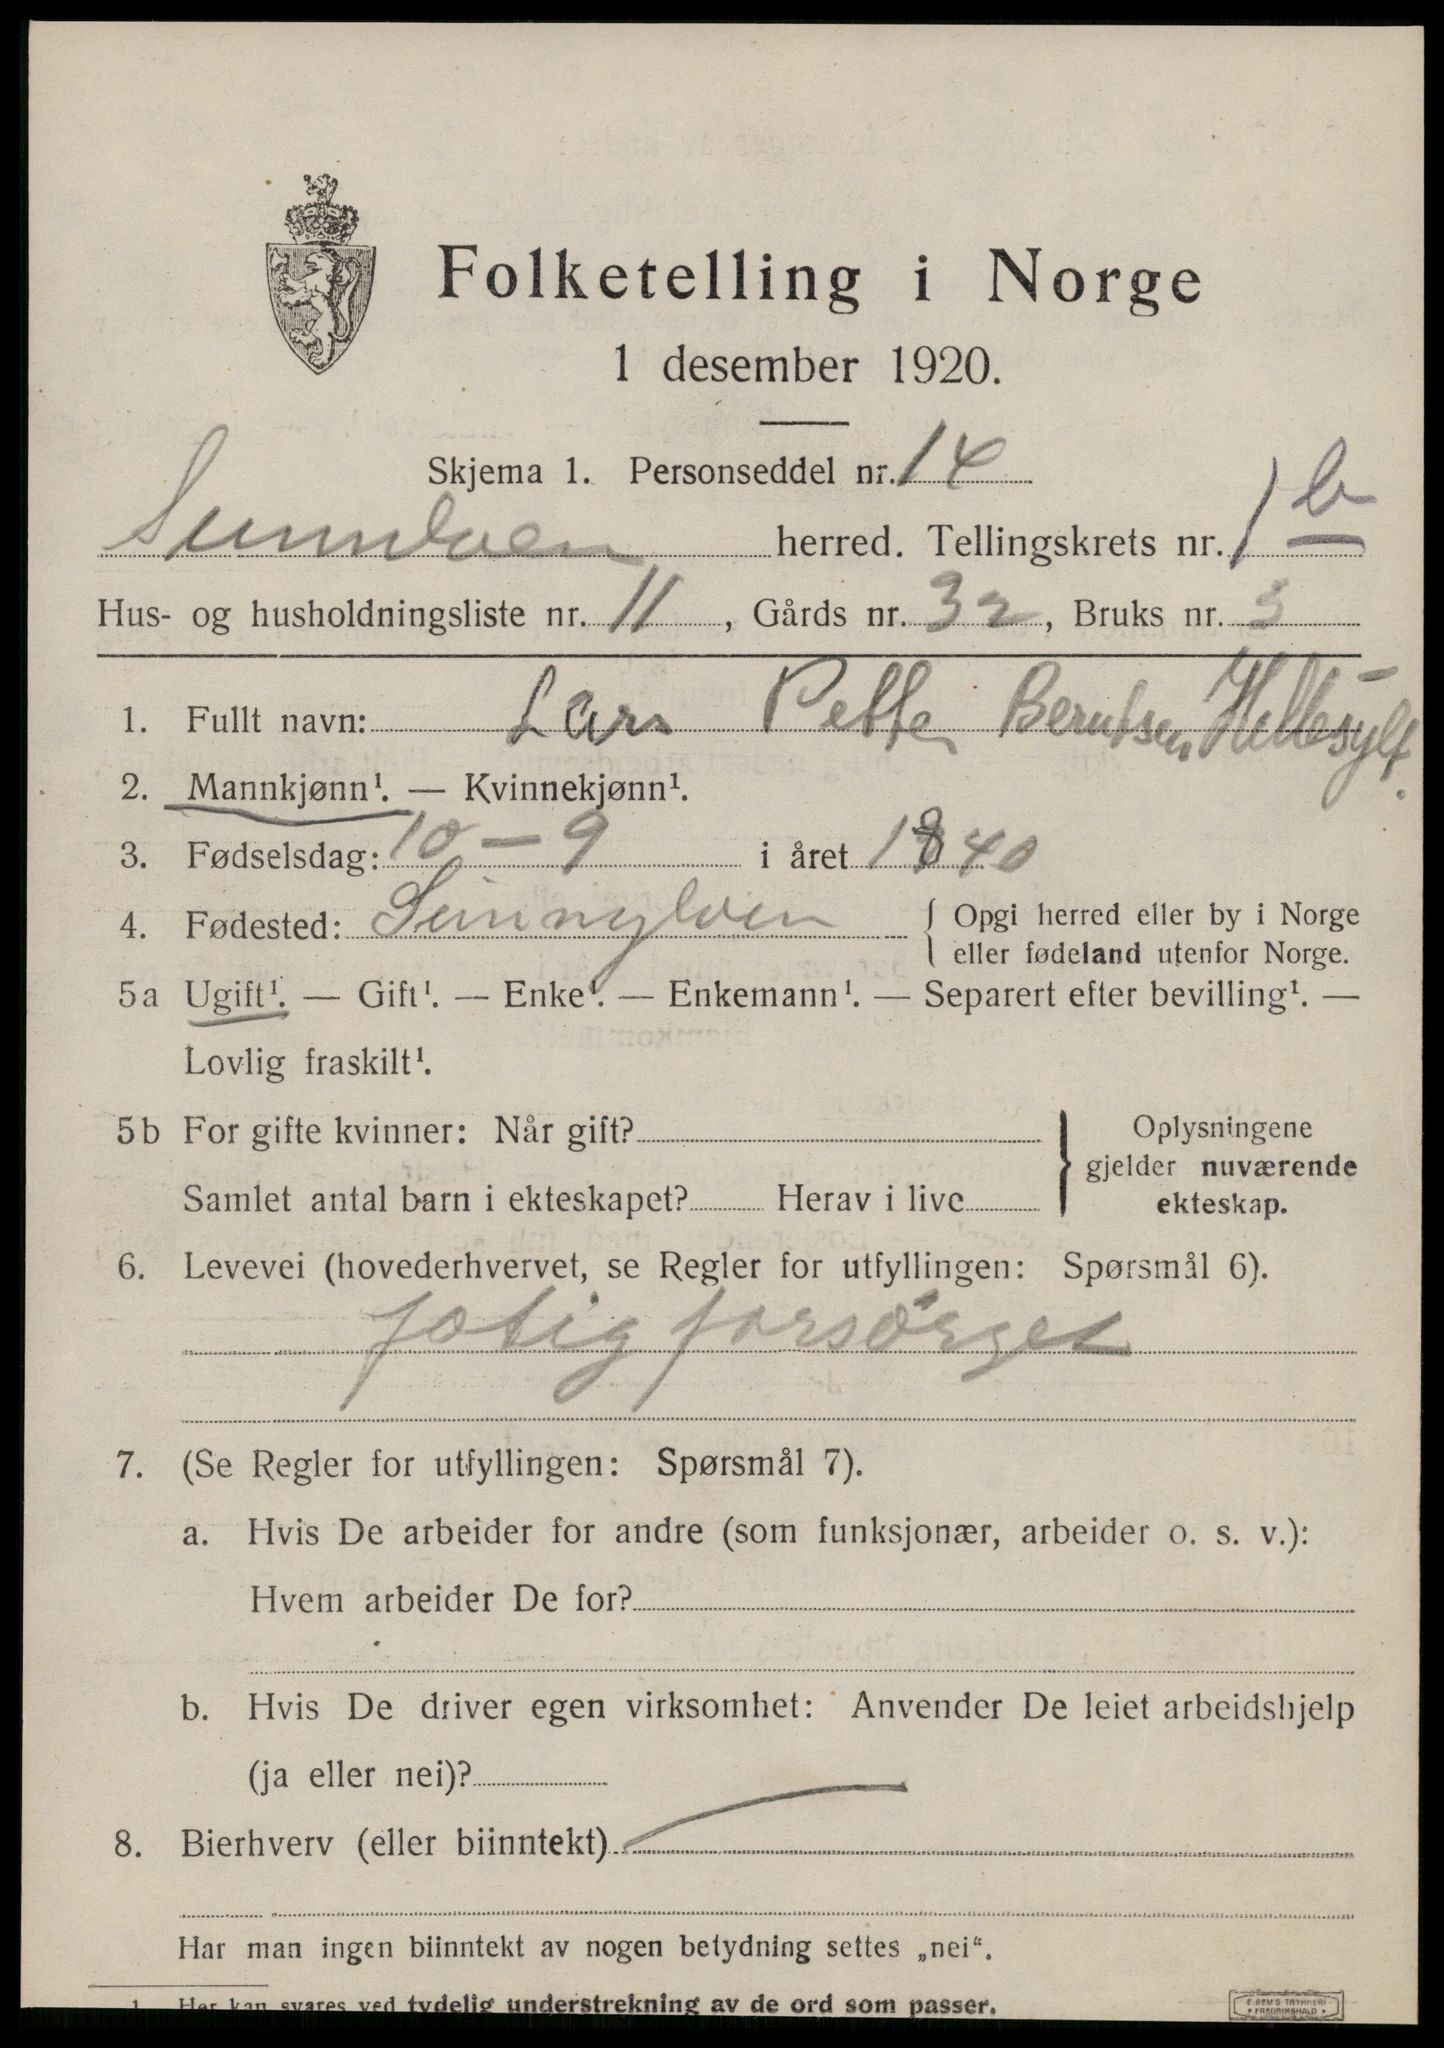 Folketelling i Norge
1 desember 1920.
Skjema 1. Personseddel nr. 14
herred. Tellingskrets nr. 1 b
Hus- og husholdningsliste nr. 11, Gårds nr. 32, Bruks nr. 3
1. Fullt navn: Lars Petter Berntsen Hellesylt.
2. Mannkjønn¹. — Kvinnekjønn¹.
3. Fødselsdag: 10 - 9 i året 1840
4. Fødested: Sunnylven { Opgi herred eller by i Norge
eller fødeland utenfor Norge.
5a Ugift¹. — Gift¹. — Enke¹. — Enkemann¹. — Separert efter bevilling¹. —
Lovlig fraskilt¹.
5b For gifte kvinner: Når gift?
Samlet antal barn i ekteskapet? Herav i live
} Oplysningene
gjelder nuværende
ekteskap.
6. Levevei (hovederhvervet, se Regler for utfyllingen: Spørsmål 6).
fatig forsörget
7. (Se Regler for utfyllingen: Spørsmål 7).
a. Hvis De arbeider for andre (som funksjonær, arbeider o. s. v.):
Hvem arbeider De for?
b. Hvis De driver egen virksomhet: Anvender De leiet arbeidshjelp
(ja eller nei)?
8. Bierhverv (eller biinntekt)
Har man ingen biinntekt av nogen betydning settes „nei“.
1. Her kan svares ved tydelig understrekning av de ord som passer.
E. SEM'S TRYKKERI
* FREDRIKSHALD *